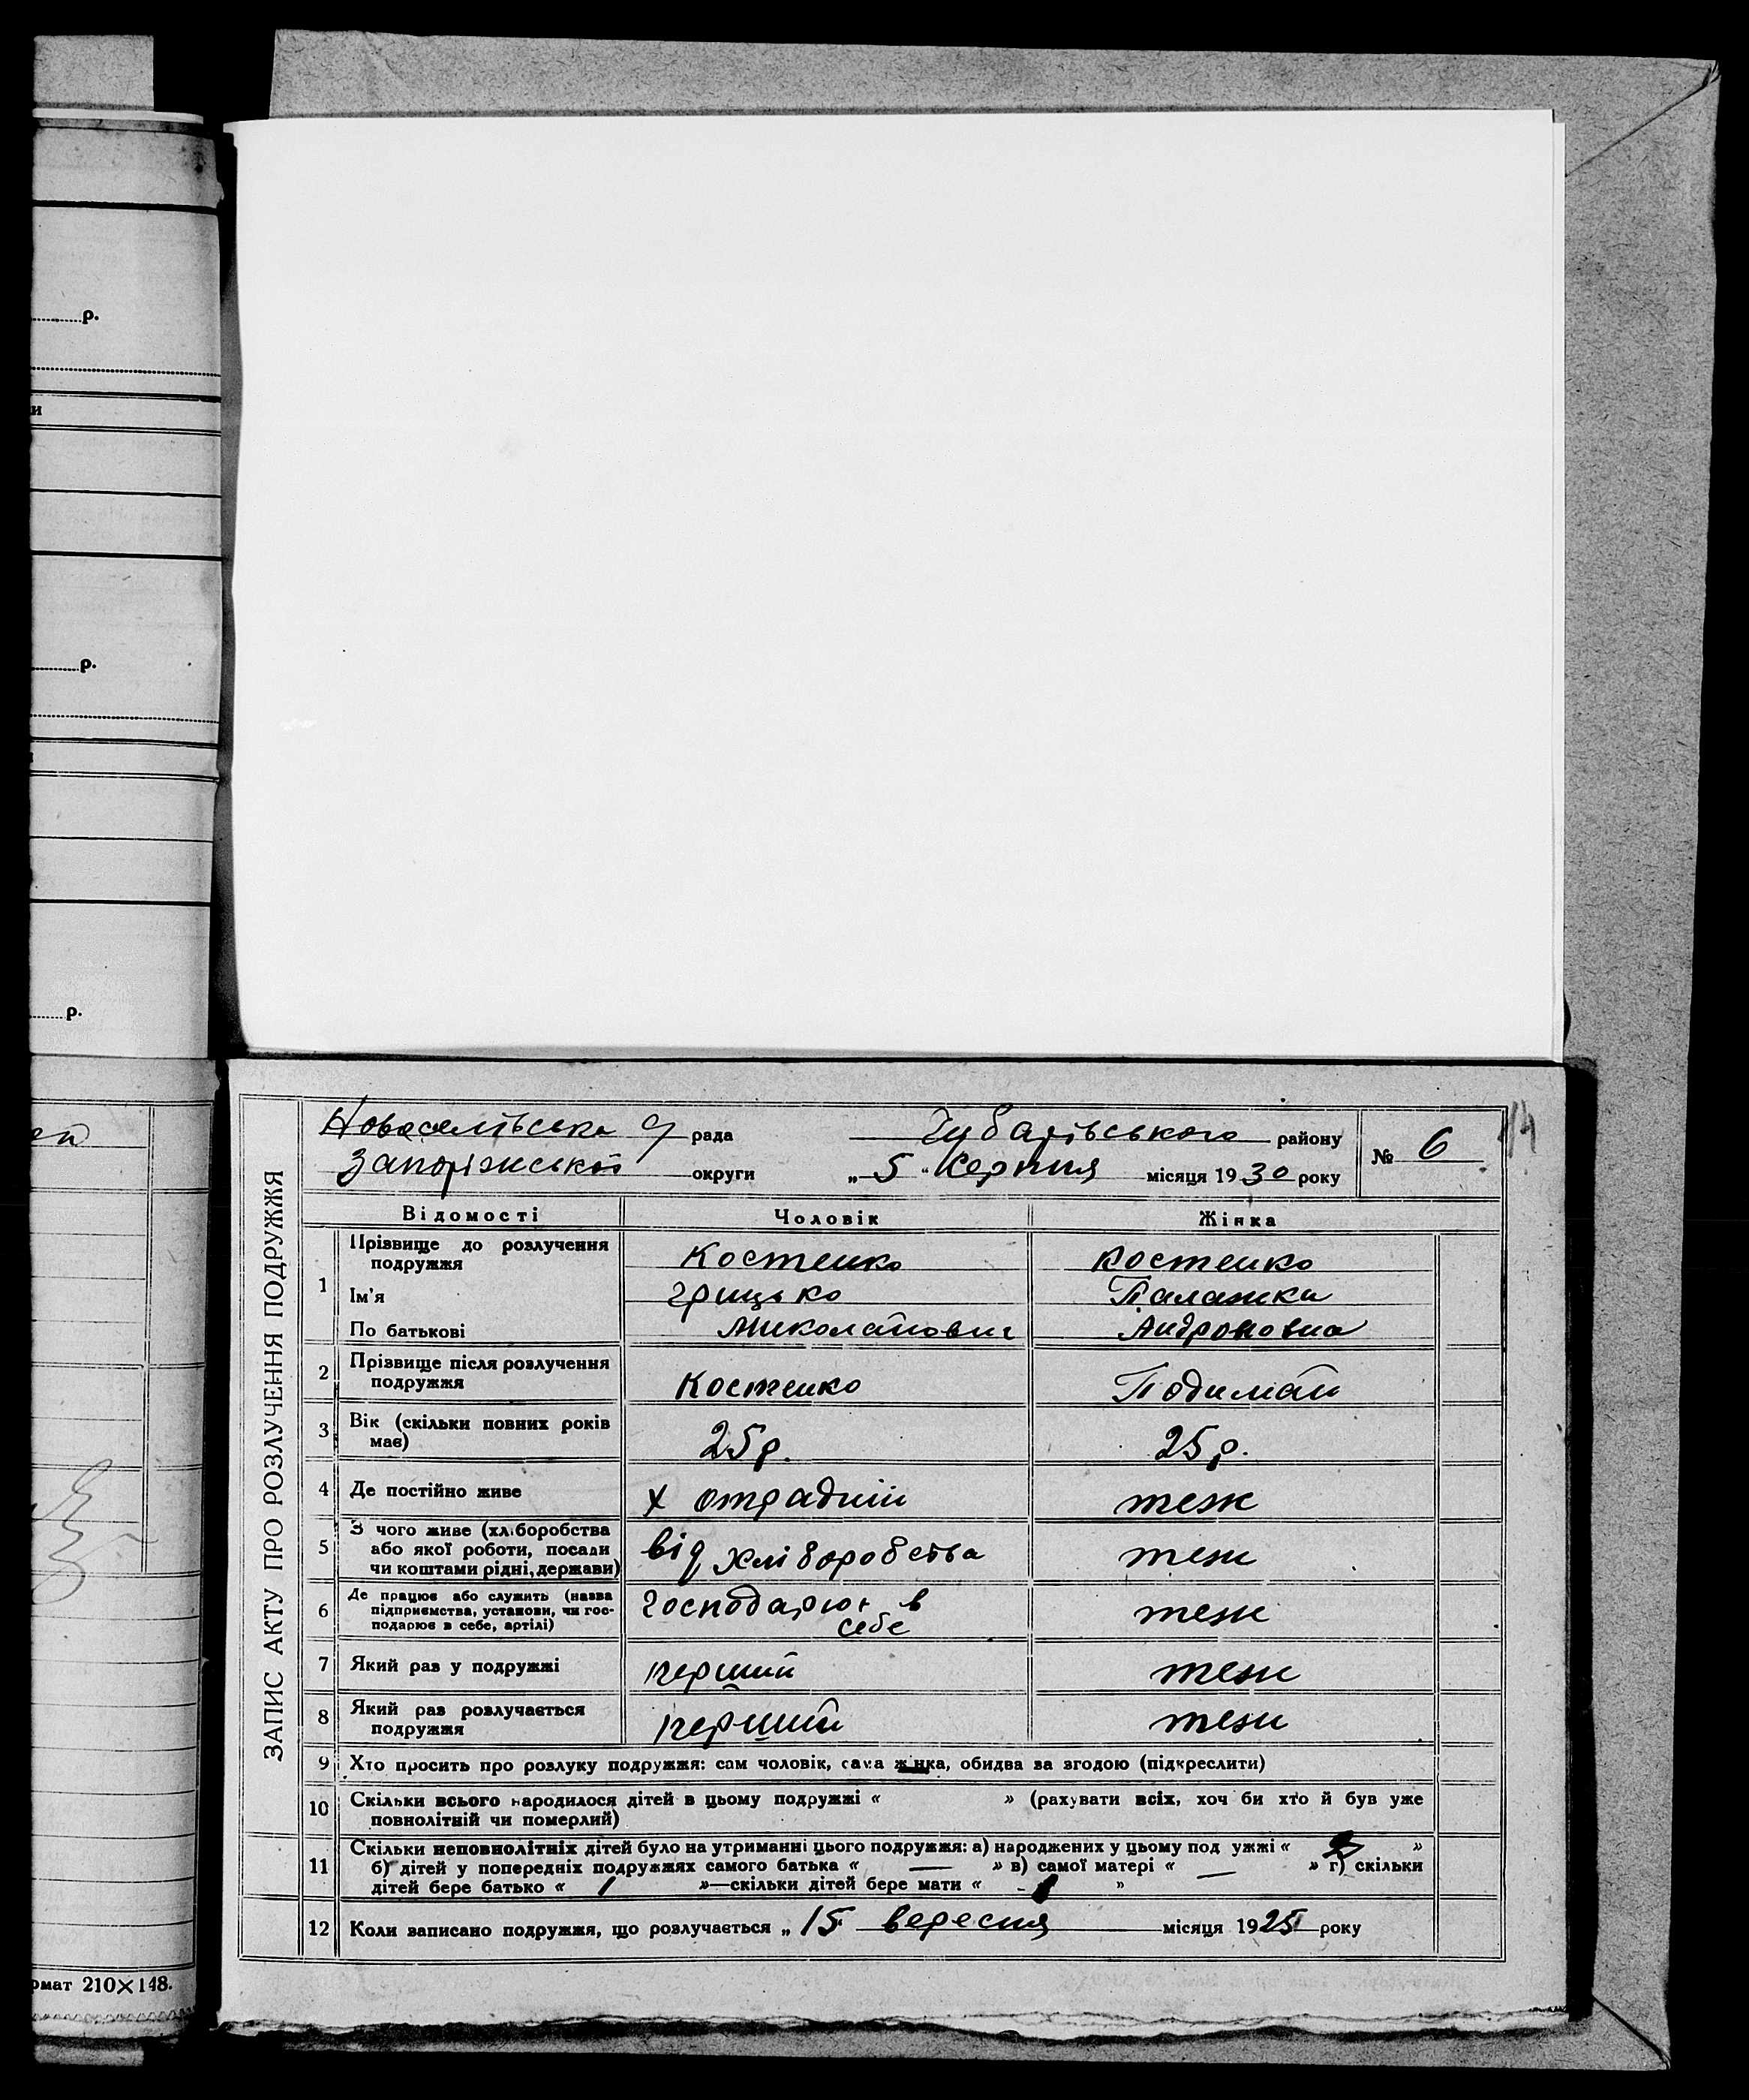 р.
и
р.
р.
ей
рмат 210×148.
14
ЗАПИС АКТУ ПРО РОЗЛУЧЕННЯ ПОДРУЖЖЯ
Новоселівська рада Чубарівського району № 6
Запоріжської округи „5“ Серпня місяця 1930 року
Відомості Чоловік Жінка
1 Прізвище до розлучення подружжя Костенко Костенко
Ім'я Грицько Палажка
По батькові Миколайович Андроновна
2 Прізвище після розлучення подружжя Костенко Подимай
3 Вік (скільки повних років має) 25 р. 25 р.
4 Де постійно живе х отрадний теж
5 З чого живе (хліборобства або якої роботи, посади чи коштами рідні, держави) від хліборобства теж
6 Де працює або служить (назва підприємства, установи, чи господарює в себе, артілі) господарює в себе теж
7 Який раз у подружжі перший теж
8 Який раз розлучається подружжя перший теж
9 Хто просить про розлуку подружжя: сам чоловік, сама жінка, обидва за згодою (підкреслити)
10 Скільки всього народилося дітей в цьому подружжі « » (рахувати всіх, хоч би хто й був уже
повнолітній чи померлий)
11 Скільки неповнолітніх дітей було на утриманні цього подружжя: а) народжених у цьому подружжі « 2 »
б) дітей у попередніх подружжях самого батька « — » в) самої матері « — » г) скільки
дітей бере батько « 1 »—скільки дітей бере мати « 1 »
12 Коли записано подружжя, що розлучається „15 вересня місяця 1925 року